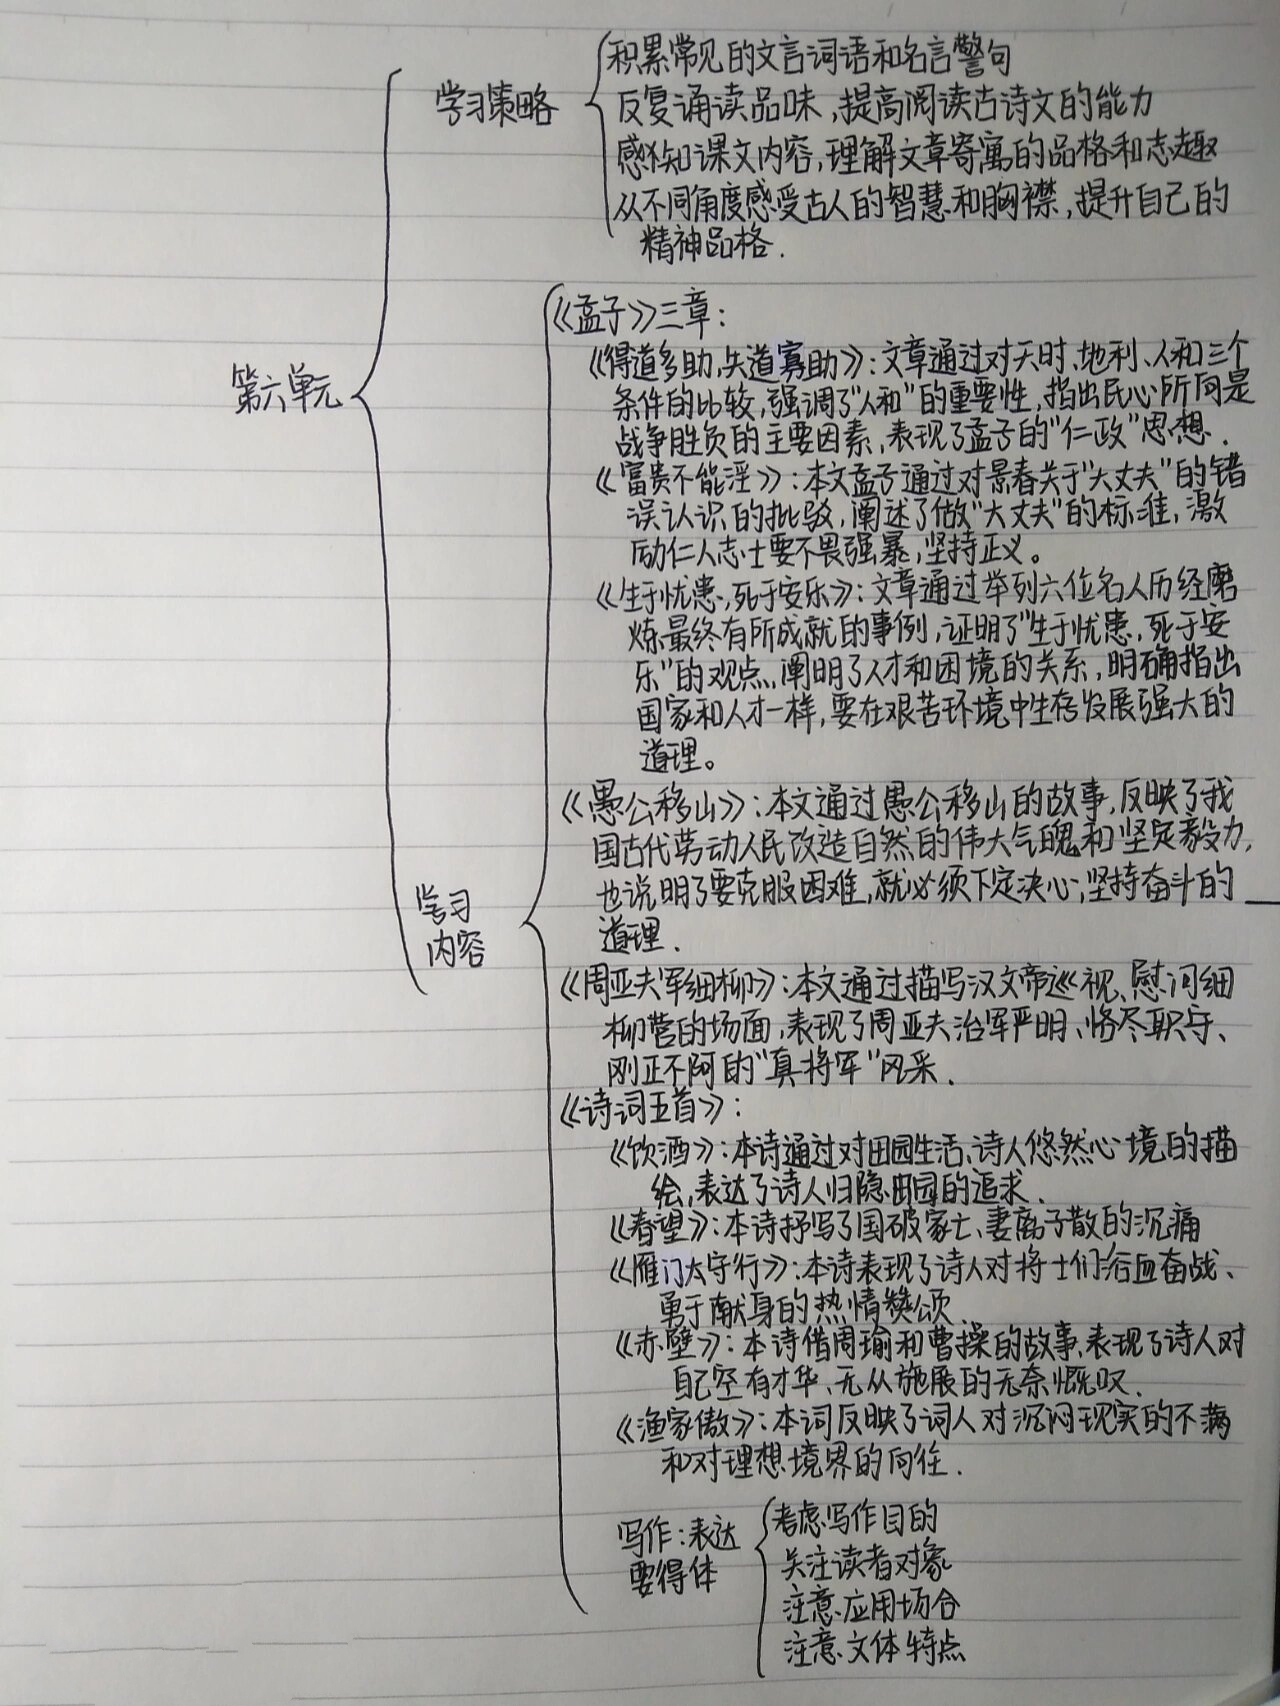 学习策略
积累常见的文言词语和名言警句
反复诵读品味,提高阅读古诗文的能力
感知课文内容,理解文章寄寓的品格和志趣
从不同角度感受古人的智慧和胸襟,提升自己的
精神品格.
第六单元
学习
内容
《孟子》三章:
《得道多助,失道寡助》:文章通过对天时、地利、人和三个
条件的比较,强调了"人和"的重要性,指出民心所向是
战争胜负的主要因素,表现了孟子的"仁政"思想.
《富贵不能淫》:本文孟子通过对景春关于"大丈夫"的错
误认识的批驳,阐述了做"大丈夫"的标准,激
励仁人志士要不畏强暴,坚持正义。
《生于忧患,死于安乐》:文章通过举列六位名人历经磨
炼最终有所成就的事例,证明了"生于忧患,死于安
乐"的观点,阐明了人才和困境的关系,明确指出
国家和人才一样,要在艰苦环境中生存发展强大的
道理。
《愚公移山》:本文通过愚公移山的故事,反映了我
国古代劳动人民改造自然的伟大气魄和坚定毅力,
也说明了要克服困难,就必须下定决心,坚持奋斗的
道理.
《周亚夫军细柳》:本文通过描写汉文帝巡视、慰问细
柳营的场面,表现了周亚夫治军严明、恪尽职守、
刚正不阿的"真将军"风采.
《诗词五首》:
《饮酒》:本诗通过对田园生活、诗人悠然心境的描
绘,表达了诗人归隐田园的追求.
《春望》:本诗抒写了国破家亡、妻离子散的沉痛
《雁门太守行》:本诗表现了诗人对将士们浴血奋战、
勇于献身的热情赞颂.
《赤壁》:本诗借周瑜和曹操的故事,表现了诗人对
自己空有才华、无从施展的无奈慨叹.
《渔家傲》:本词反映了词人对沉闷现实的不满
和对理想境界的向往.
写作:表达
要得体
考虑写作目的
关注读者对象
注意应用场合
注意文体特点